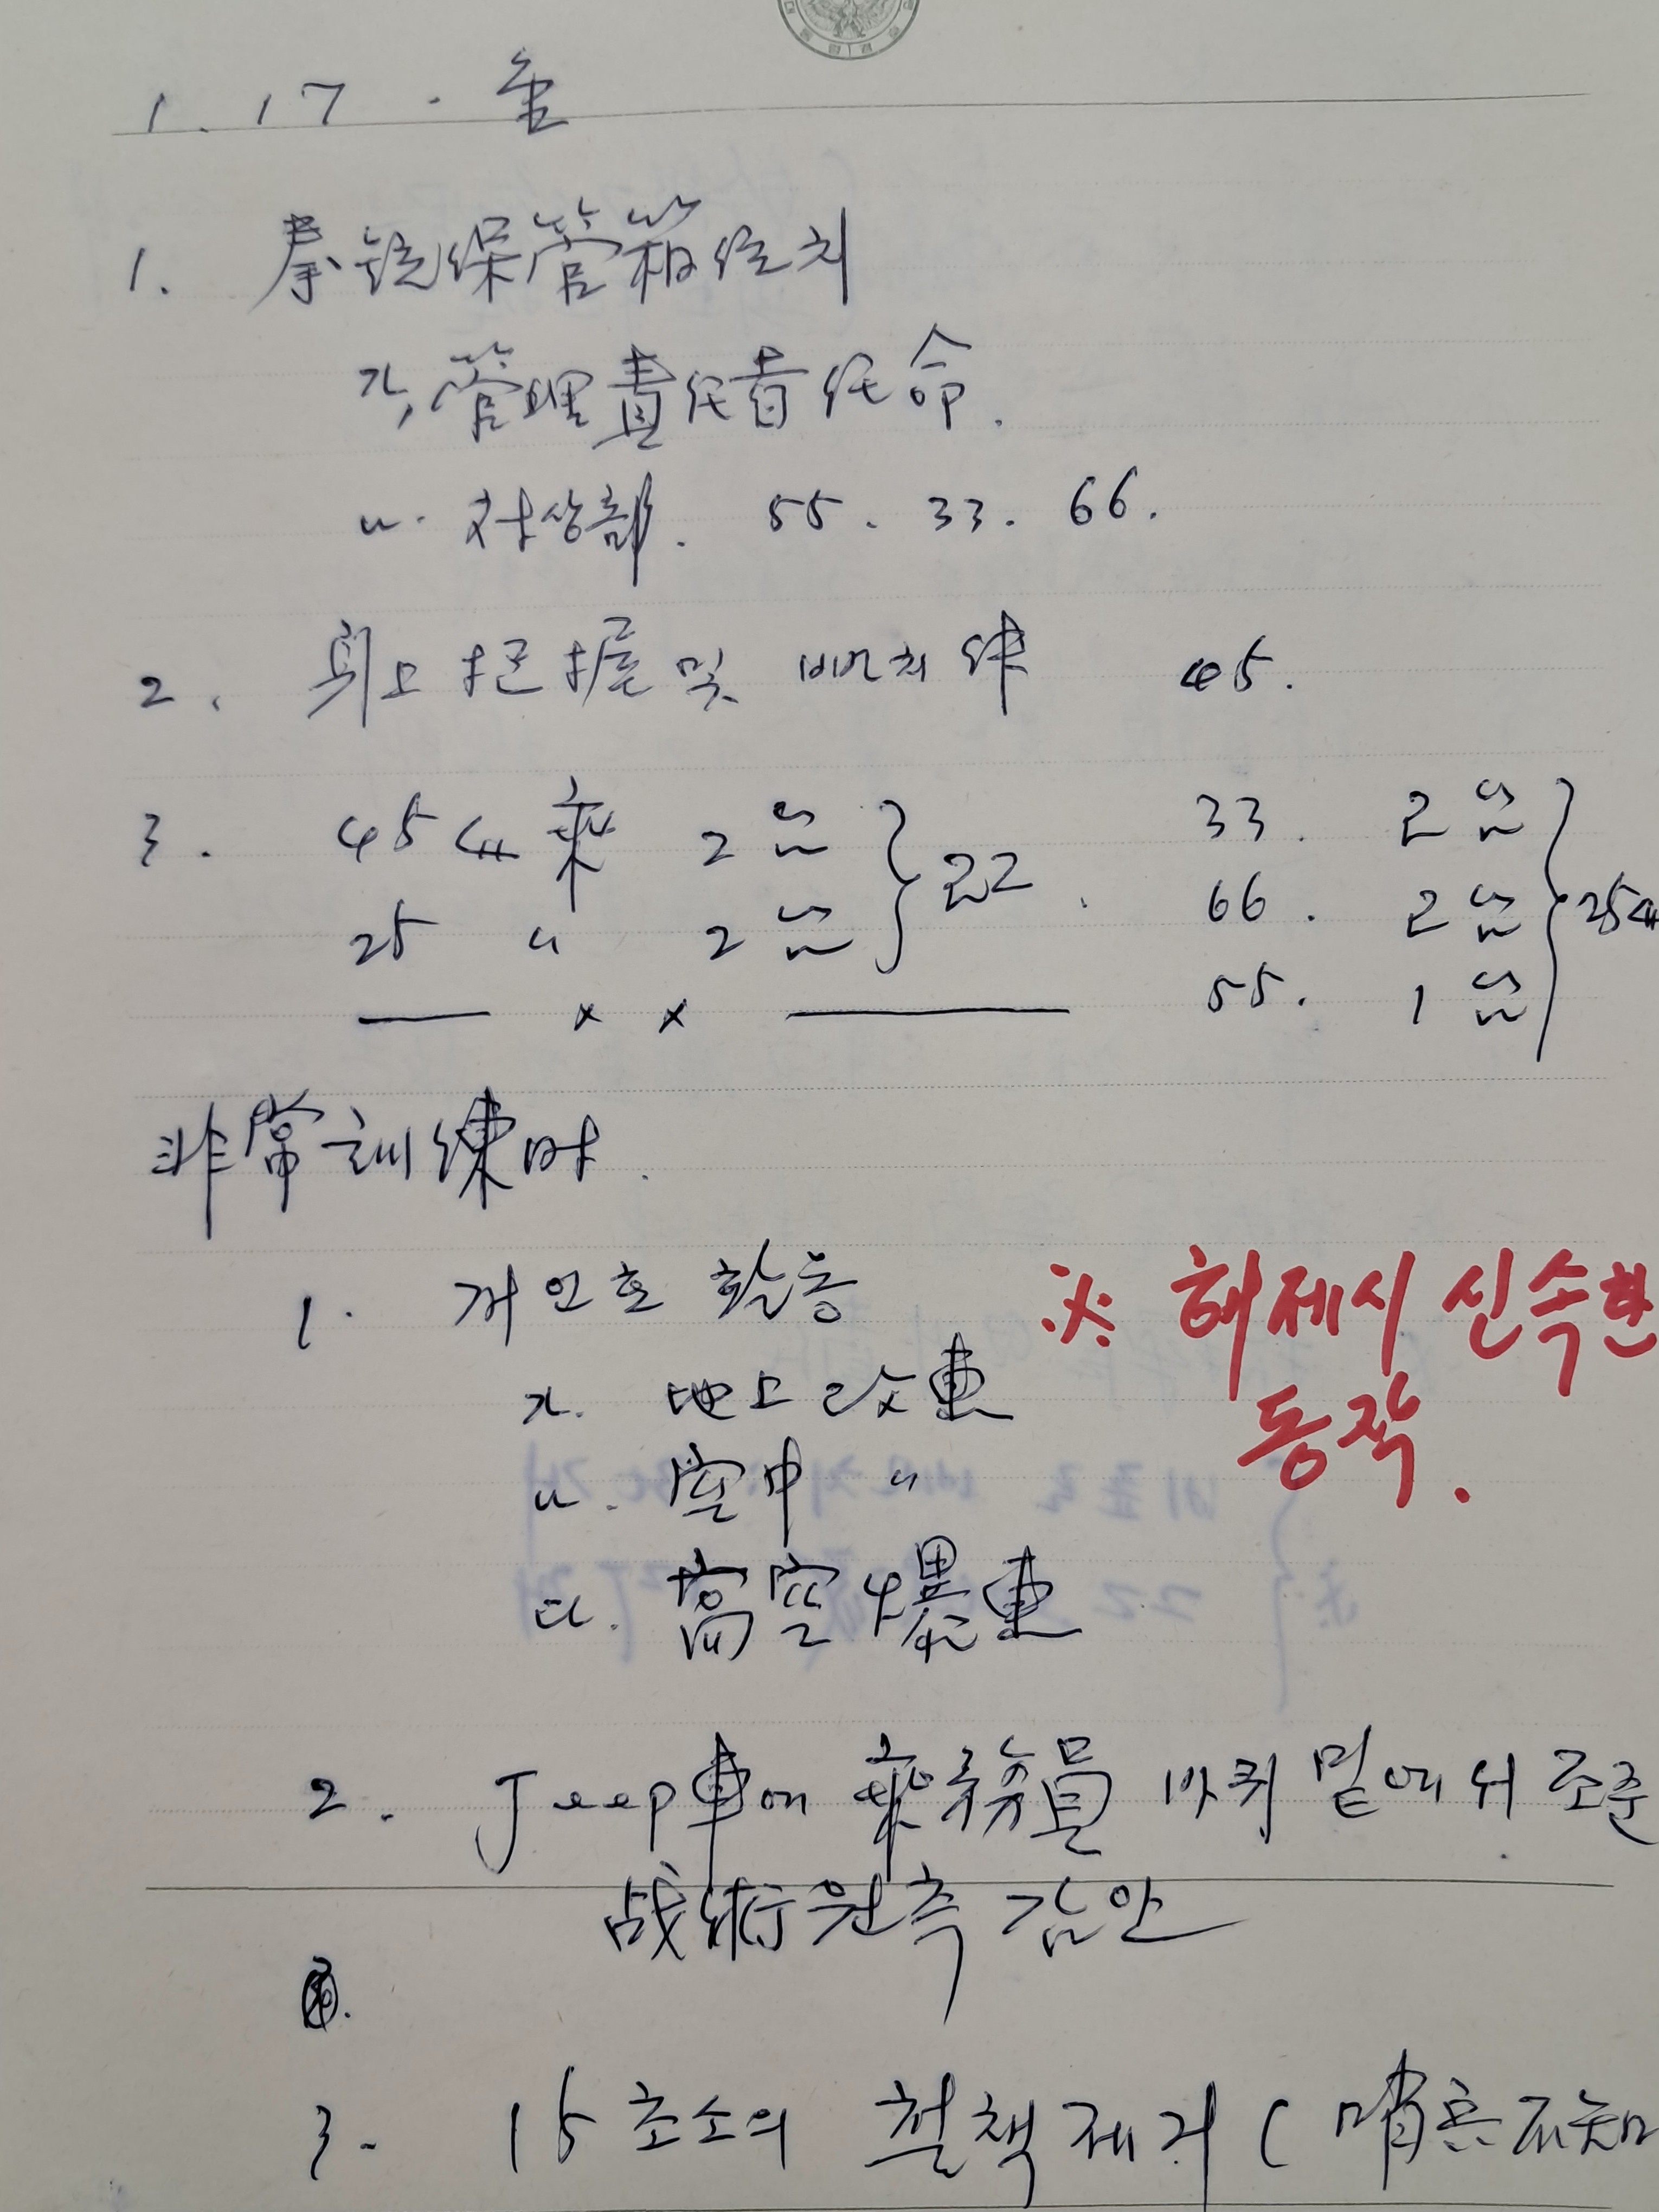 1. 17. 金
1. 拳銃保管箱 位치
가, 管理責任者 任命.
나. 対상部. 55. 33. 66.
2. 身上 把握 및 배치 45.
3. 45 4/4 乘 2명 } 22. 33. 2명
25 〃 2명 66. 2명 } 254
— x x — 55. 1명
非常訓練時.
1. 개인호 활동 ※ 해제시 신속한
동작.
가. 地上 攻東
나. 空中 〃
다. 高空 爆東
2. Jeep車에 乘務員 바퀴 밑에서 조준
战術원측 감안
3. 15초소의 철책 제거 ( 哨兵 不知